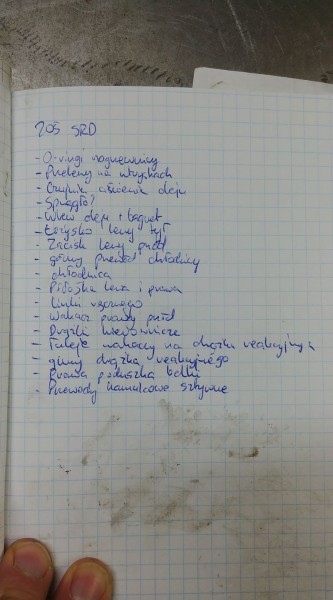 205 SRD
- O-ringi nagrzewnicy
- Przelewy na wtryskach
- Czujnik ciśnienia oleju
- Sprzęgło?
- Wlew oleju + bagnet
- Łożysko lewy tył
- Zacisk lewy przód
- górny przewód chłodnicy
- chłodnica
- Półośka lewa i prawa
- Linki ręcznego
- Wahacz prawy przód
- Drążki kierownicze
- Tuleje wahaczy na drążku reakcyjnym
- gumy drążka reakcyjnego
- Prawa poduszka belki
- Przewody hamulcowe sztywne